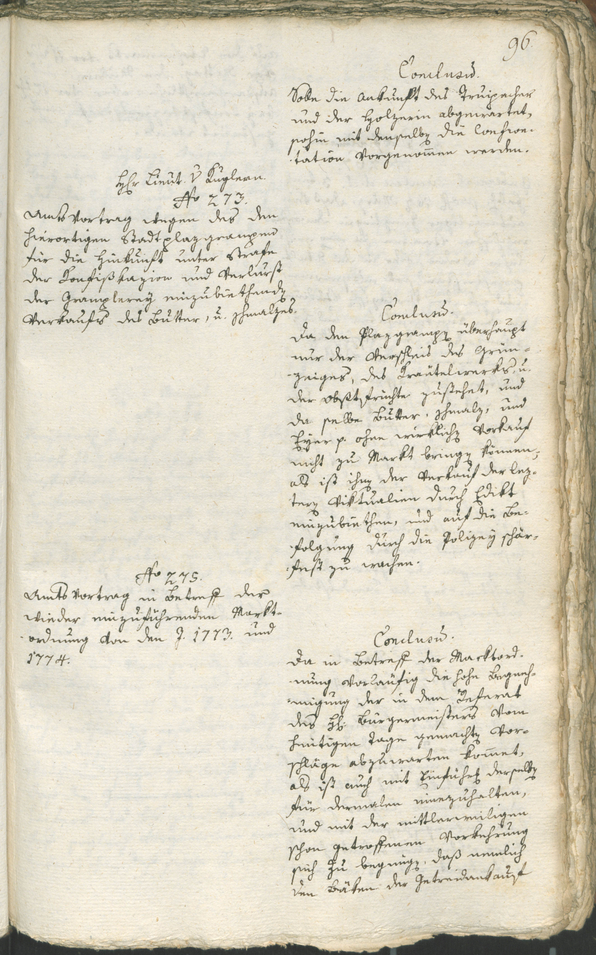 96.
Conclusum.
Solle die Ankunft des Truipecher
und der Holzerin abgewartet,
sohin mit denselben die Confron-
tation vorgenommen werden.
H. Hr Lieut. v Kuglern.
No 273.
Amtsvortrag wegen des den
hierortigen Stadtplaz grampen
für die Hinkunft unter Strafe
der Konfiskazion und Verlurst
der Gramplerey einzubiethenden
Verkaufs des Butter, u. Schmalzes.
Conclusum.
Da den Plazgrampen überhaupt
nur der Verschleis des Grün-
zeiges, des Kräutelwerks, u.
der Obstfrüchte zustehet, und
da selbe Butter, Schmalz, und
Eyer p ohne wirklichen Vorkauf
nicht zu Markt bringen können;
als ist ihnen der Verkauf der lez-
tern Viktualien durch Edikt
einzubiethen, und auf die Be-
folgung durch die Polizey schär-
fest zu wachen.
No 275.
Amtsvortrag in Betreff der
wieder einzuführenden Markt-
ordnung von den J. 1773. und
1774.
Conclusum.
Da in Betreff der Marktord-
nung vorläufig die hohe Begneh-
migung der in dem Referat
des H. Bürgermeisters vom
heutigen Tage gemachten Vor-
schläge abzuwarten kommet,
als ist auch mit Einführung derselben
für dermalen innezuhalten,
und mit der mittlerweiligen
schon getroffenen Vorkehrung
sich zu begnügen, daß nemlich
den Bäken der Getreidankauf